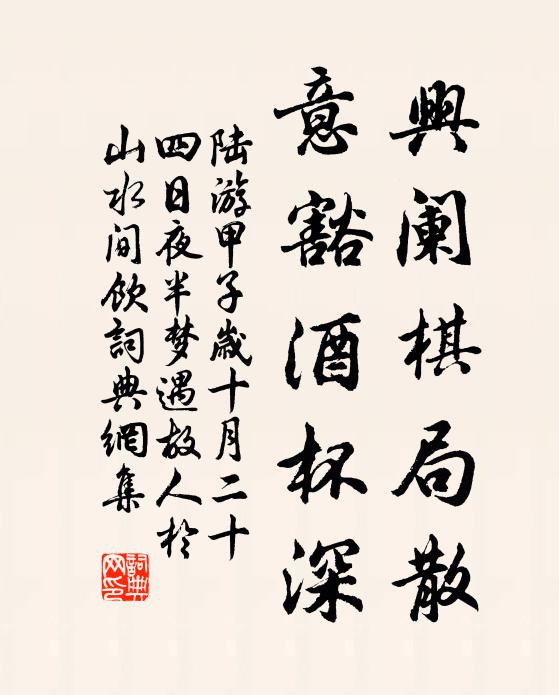 興阑棋局散
意豁酒杯深
陆游甲子歲十月二十
四日夜半梦遇故人於
山水间飲詞典網集
詞典
网印